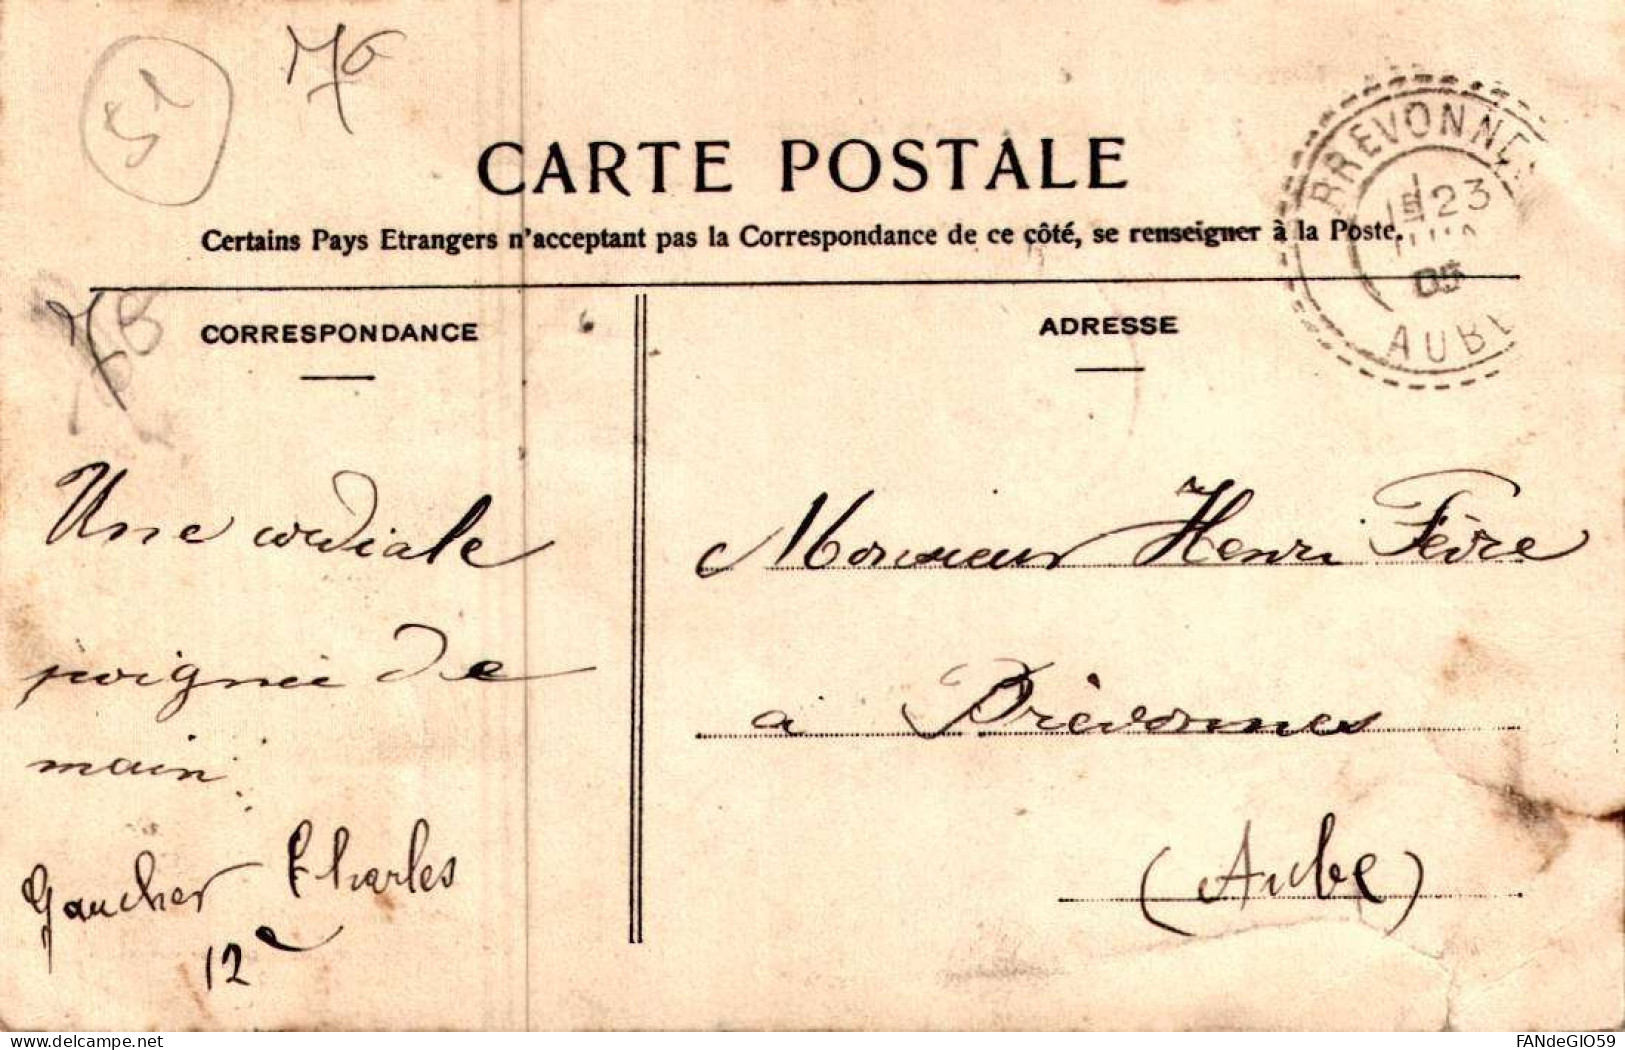 51
CARTE POSTALE
Certains Pays Etrangers n'acceptant pas la Correspondance de ce côté, se renseigner à la Poste.
BREVONNES
23
05
AUBE
CORRESPONDANCE
Une cordiale
poignée de
main.
Gaucher Charles
12e
ADRESSE
Monsieur Henri Fèvre
à Brèvonnes
(Aube)
delcampe.net
FANdeGIO59